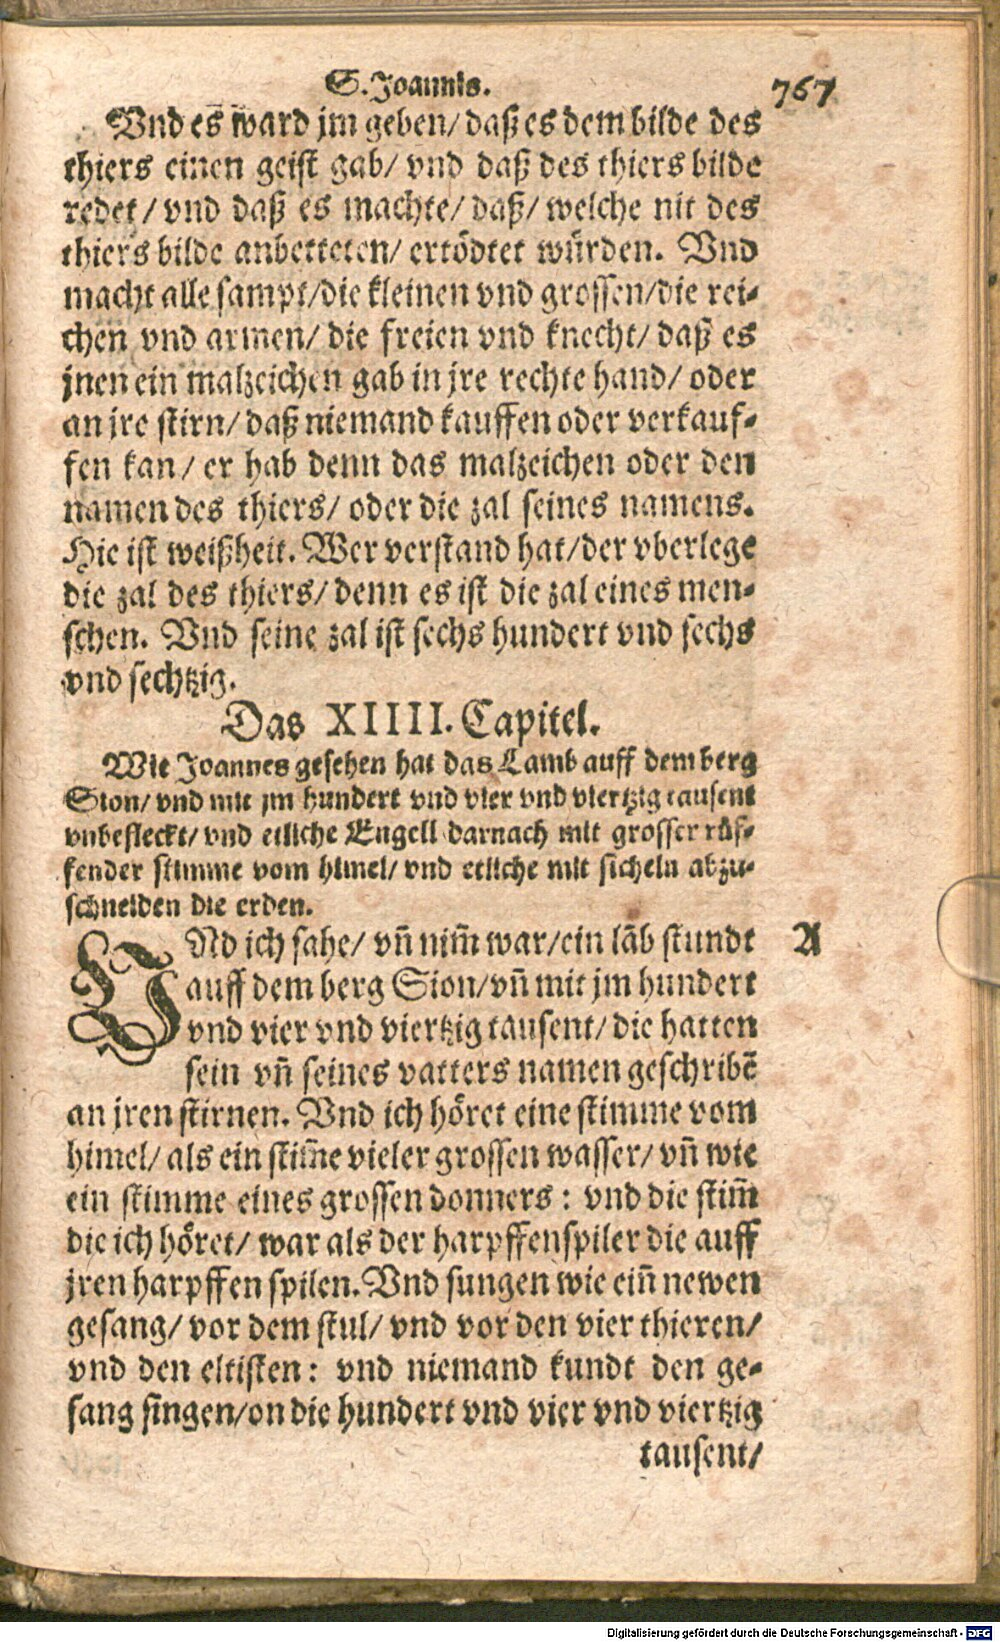 S. Joannis. 767
Vnd es ward jm geben/ daß es dem bilde des
thiers einen geist gab/ vnd daß des thiers bilde
redet/ vnd daß es machte/ daß/ welche nit des
thiers bilde anbetteten/ ertödtet würden. Vnd
macht alle sampt/die kleinen vnd grossen/die rei-
chen vnd armen/ die freien vnd knecht/ daß es
jnen ein malzeichen gab in jre rechte hand/ oder
an jre stirn/ daß niemand kauffen oder verkauf-
fen kan/ er hab denn das malzeichen oder den
namen des thiers/ oder die zal seines namens.
Hie ist weißheit. Wer verstand hat/der vberlege
die zal des thiers/ denn es ist die zal eines men-
schen. Vnd seine zal ist sechs hundert vnd sechs
vnd sechtzig.
Das XIIII. Capitel.
Wie Joannes gesehen hat das Lamb auff dem berg
Sion/ vnd mit jm hundert vnd vier vnd viertzig tausent
vnbefleckt/ vnd etliche Engell darnach mit grosser rüf-
fender stimme vom himel/ vnd etliche mit sicheln abzu-
schneiden die erden.
VNd ich sahe/ vn̄ nim̄ war/ein lāb stundt A
auff dem berg Sion/vn̄ mit jm hundert
vnd vier vnd viertzig tausent/ die hatten
sein vn̄ seines vatters namen geschribē
an jren stirnen. Vnd ich höret eine stimme vom
himel/ als ein stim̄e vieler grossen wasser/ vn̄ wie
ein stimme eines grossen donners: vnd die stim̄
die ich höret/ war als der harpffenspiler die auff
jren harpffen spilen. Vnd sungen wie ein̄ newen
gesang/ vor dem stul/ vnd vor den vier thieren/
vnd den eltisten: vnd niemand kundt den ge-
sang singen/on die hundert vnd vier vnd viertzig
tausent/
Digitalisierung gefördert durch die Deutsche Forschungsgemeinschaft - DFG